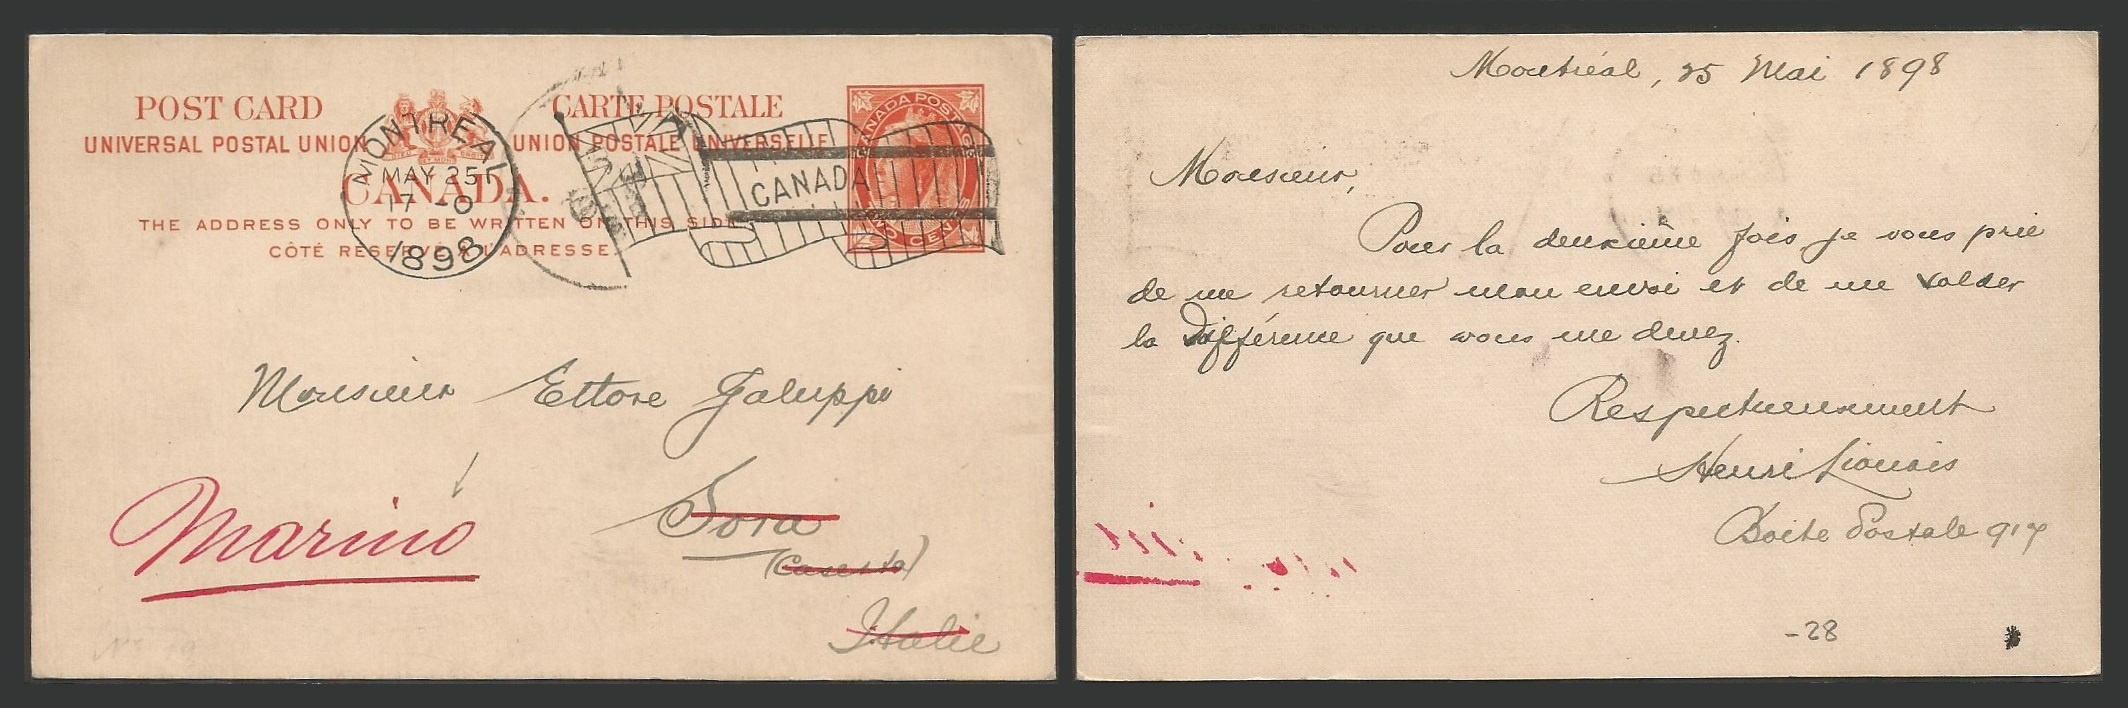 POST CARD CARTE POSTALE
UNIVERSAL POSTAL UNION UNION POSTALE UNIVERSELLE
CANADA.
THE ADDRESS ONLY TO BE WRITTEN ON THIS SIDE
CÔTÉ RÉSERVÉ À L'ADRESSE.
MONTREAL
MAY 25
17 - 0
1898
CANADA
CANADA POSTAGE
TWO CENTS
Monsieur Ettore Galuppi
Sora
(Caserta)
Italie
Marino
Montréal, 25 Mai 1898
Monsieur,
Pour la deuxième fois je vous prie
de me retourner mon envoi et de me solder
la différence que vous me devez.
Respectueusement
Henri Lionais
Boite Postale 917
-28